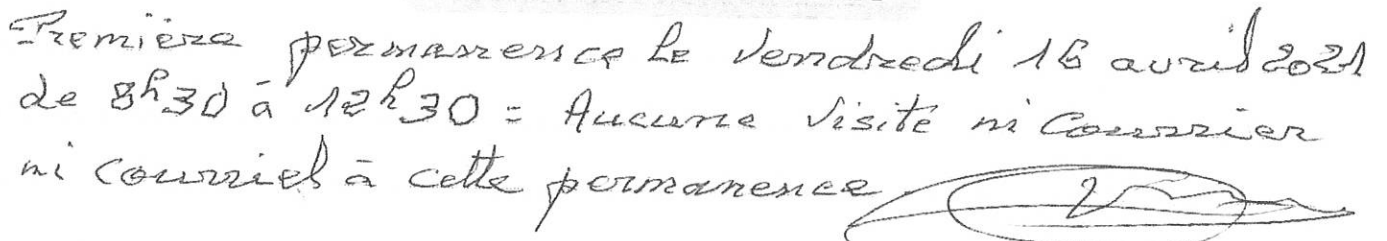 Première permanence le Vendredi 16 avril 2021
de 8h30 à 12h30 = Aucune visite ni Courrier
ni courriel à cette permanence.